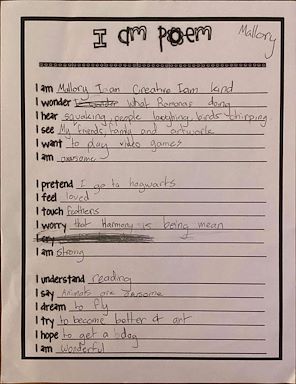 I am poem
Mallory
I am Mallory I am Creative I am kind
I wonder I wonder what Ramonas doing
I hear squaking, people laughing, birds chirping
I see My friends, family and artwork
I want to play video games
I am awesome
I pretend I go to hogwarts
I feel loved
I touch feathers
I worry that Harmony is being mean
I cry
I am strong
I understand reading
I say Animals are awesome
I dream to fly
I try to become better @ art
I hope to get a dog
I am wonderful